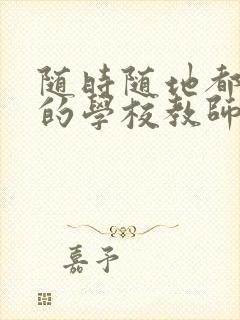 随時随地都
的學校教師
嘉予